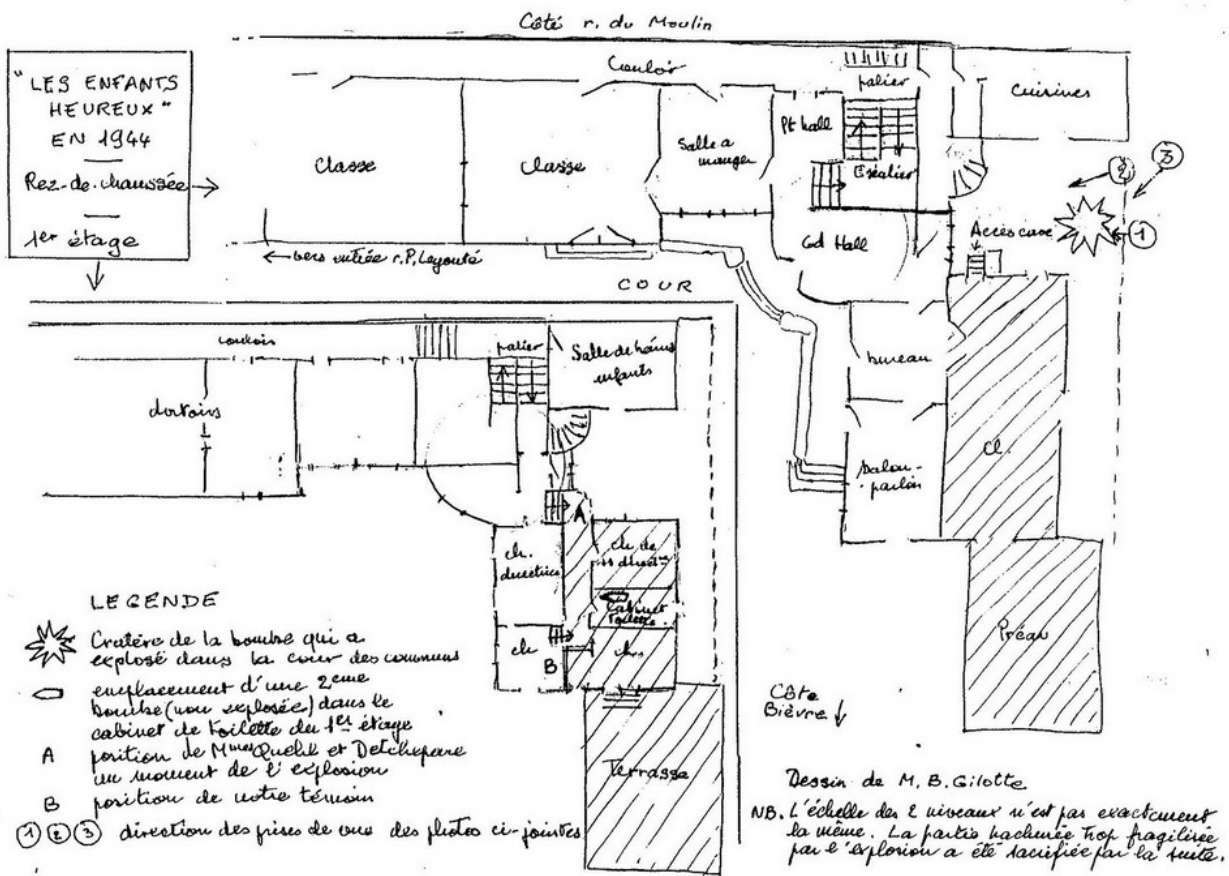 Côté r. du Moulin
"LES ENFANTS
HEUREUX"
EN 1944
Rez-de-chaussée
1er étage
Couloir
palier
Cuisines
Classe
Classe
Salle a
manger
Pt hall
Escalier
Gd Hall
Accès cave
2
3
1
← vers entrée r. P. Leyouté
COUR
bureau
Cl.
Salon-
parloir
Préau
Côte
Bièvre
couloir
palier
Salle de bains
enfants
dortoirs
A
ch.
directrice
ch de
directce
Cabinet
Toilette
ch
B
chs
Terrasse
LEGENDE
Cratère de la bombe qui a
explosé dans la cour des communs
emplacement d'une 2eme
bombe (non explosée) dans le
cabinet de toilette du 1er étage
A position de Mmes et Detchepare
au moment de l'explosion
B position de notre témoin
1 2 3 direction des prises de vue des photos ci-jointes
Dessin de M. B. Gilotte
NB. L'échelle des 2 niveaux n'est pas exactement
la même. La partie hachurée trop fragilisée
par l'explosion a été sacrifiée par la suite.